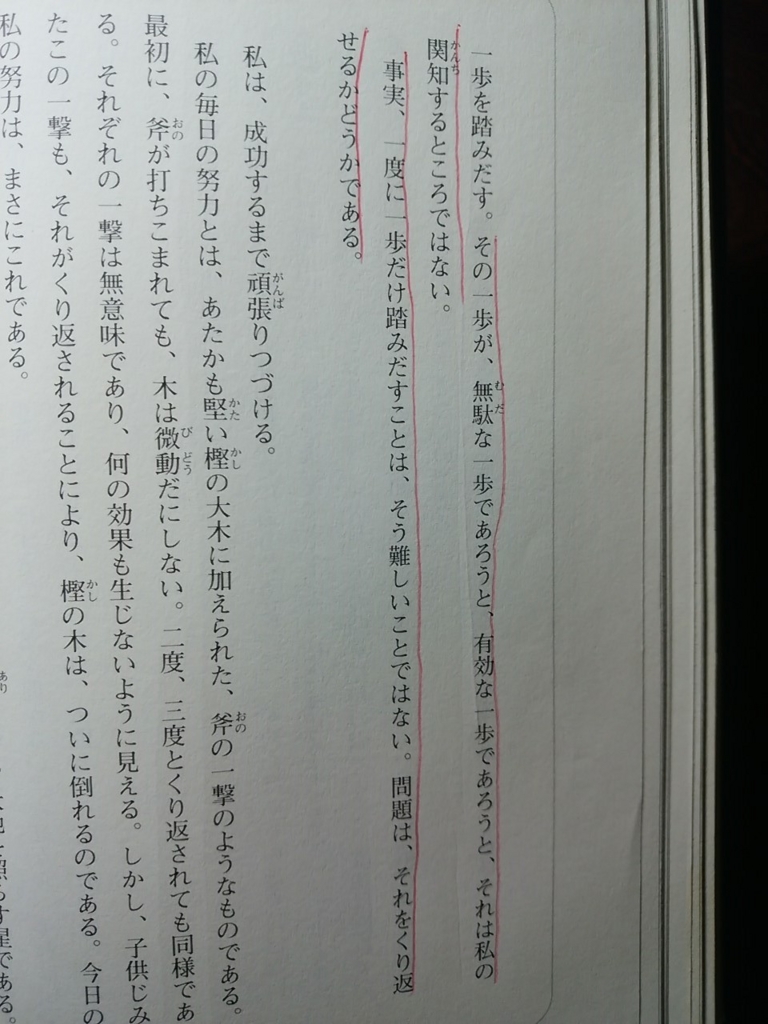 一歩を踏みだす。その一歩が、無駄な一歩であろうと、有効な一歩であろうと、それは私の
関知するところではない。
事実、一度に一歩だけ踏みだすことは、そう難しいことではない。問題は、それをくり返
せるかどうかである。
私は、成功するまで頑張りつづける。
私の毎日の努力とは、あたかも堅い樫の大木に加えられた、斧の一撃のようなものである。
最初に、斧が打ちこまれても、木は微動だにしない。二度、三度とくり返されても同様であ
る。それぞれの一撃は無意味であり、何の効果も生じないように見える。しかし、子供じみ
たこの一撃も、それがくり返されることにより、樫の木は、ついに倒れるのである。今日の
私の努力は、まさにこれである。
照らす星である。